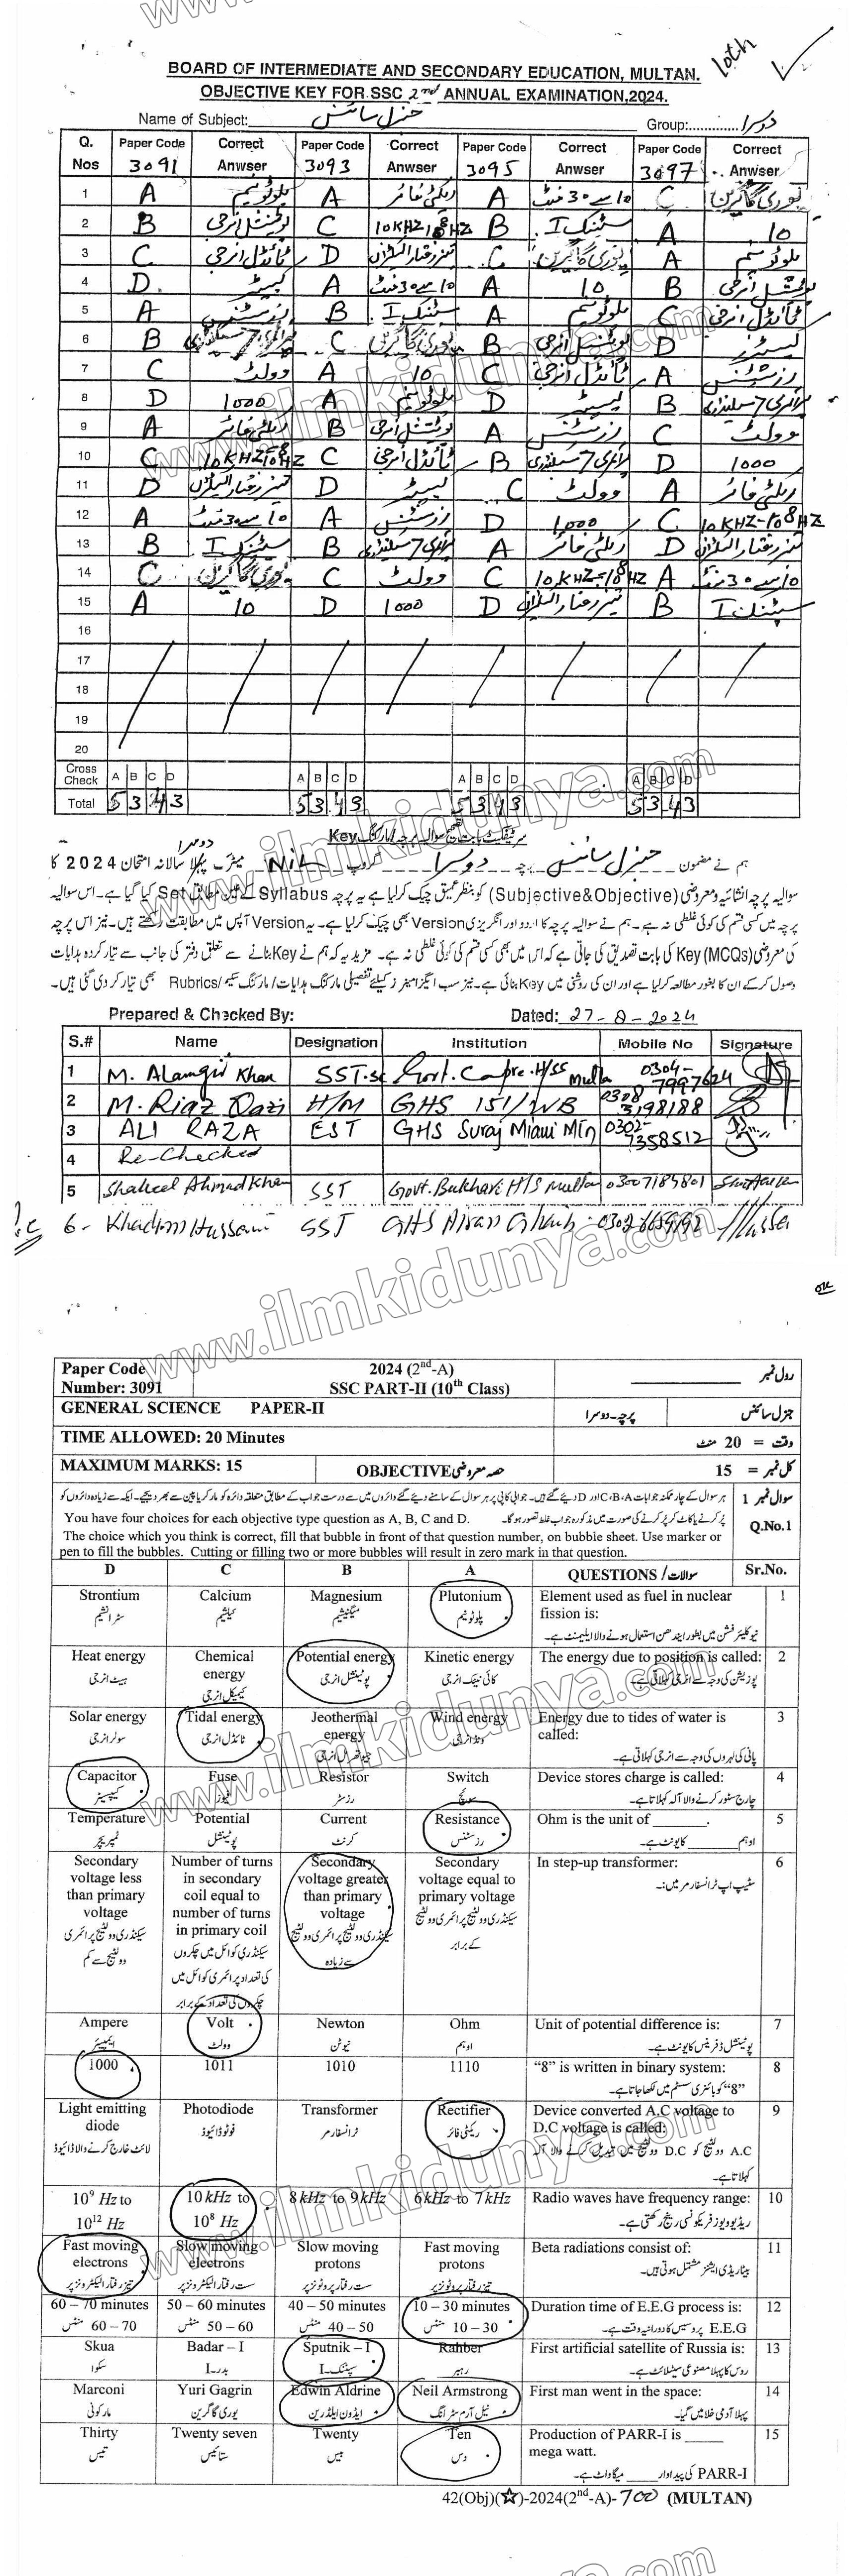 10th
BOARD OF INTERMEDIATE AND SECONDARY EDUCATION, MULTAN.
OBJECTIVE KEY FOR SSC 2nd ANNUAL EXAMINATION,2024.
Name of Subject: جنرل سائنس Group:............. دوسرا
Q. Nos Paper Code 3091 Correct Anwser Paper Code 3093 Correct Anwser Paper Code 3095 Correct Anwser Paper Code 3097 Correct Anwser
1 A پلوٹونیم A ریکٹی فائر A 10 سے 30 منٹ C یوری گاگرین
2 B پوٹینشل انرجی C 10KHZ-10⁸HZ B سپٹنک I A 10
3 C ٹائڈل انرجی D تیز رفتار الیکٹران C یوری گاگرین A پلوٹونیم
4 D کپیسٹر A 10 سے 30 منٹ A 10 B پوٹینشل انرجی
5 A رزسٹنس B سپٹنک I A پلوٹونیم C ٹائڈل انرجی
6 B C یوری گاگرین B پوٹینشل انرجی D
7 C وولٹ A 10 C ٹائڈل انرجی A رزسٹنس
8 D 1000 A پلوٹونیم D B
9 A ریکٹی فائر B پوٹینشل انرجی A رزسٹنس C وولٹ
10 C 10KHZ-10⁸HZ C ٹائڈل انرجی B D 1000
11 D تیز رفتار الیکٹران D C وولٹ A ریکٹی فائر
12 A 10 سے 30 منٹ A رزسٹنس D 1000 C 10KHZ-10⁸HZ
13 B سپٹنک I B A ریکٹی فائر D تیز رفتار الیکٹران
14 C یوری گاگرین C وولٹ C 10KHZ-10⁸HZ A 10 سے 30 منٹ
15 A 10 D 1000 D تیز رفتار الیکٹران B سپٹنک I
16
17
18
19
20
Cross Check A B C D A B C D A B C D A B C D
Total 5 3 4 3 5 3 4 3 5 3 4 3 5 3 4 3
سرٹیفکیٹ بابت تصحیح سوالیہ پرچہ/مارکنگ Key
ہم نے مضمون جنرل سائنس پرچہ دوسرا گروپ Nil میٹرک پہلا دوسرا سالانہ امتحان 2024 کا
سوالیہ پرچہ انشائیہ و معروضی (Subjective&Objective) کو بنظر عمیق چیک کرلیا ہے یہ پرچہ Syllabus کے عین مطابق Set کیا گیا ہے۔ اس سوالیہ
پرچہ میں کسی قسم کی کوئی غلطی نہ ہے۔ ہم نے سوالیہ پرچہ کا اردو اور انگریزی Version بھی چیک کرلیا ہے۔ یہ Version آپس میں مطابقت رکھتے ہیں۔ نیز اس پرچہ
کی معروضی (MCQs) Key کی بابت تصدیق کی جاتی ہے کہ اس میں بھی کسی قسم کی کوئی غلطی نہ ہے۔ مزید یہ کہ ہم نے Key بنانے سے متعلق دفتر کی جانب سے تیار کردہ ہدایات
وصول کرکے ان کا بغور مطالعہ کرلیا ہے اور ان کی روشنی میں Key بنائی ہے۔ نیز سب ایگزامینرز کیلئے تفصیلی مارکنگ ہدایات/مارکنگ سکیم/Rubrics بھی تیار کردی گئی ہیں۔
Prepared & Checked By: Dated: 27-8-2024
S.# Name Designation Institution Mobile No Signature
1 M. Alamgir Khan SST-Sc Govt. Compre. H/SS Multan 0304-7997624
2 M. Riaz Qazi H/M GHS 151/WB 0308 3198188
3 ALI RAZA EST GHS Suraj Miani Mtn 0302-7358512
4 Re-Checked
5 Shakeel Ahmad Khan SST Govt. Bukhari H/S Multan 03007185801
6- Khadim Hussain SST GHS
OK
Paper Code Number: 3091 2024 (2nd-A) SSC PART-II (10th Class) رول نمبر
GENERAL SCIENCE PAPER-II پرچہ - دوسرا جنرل سائنس
TIME ALLOWED: 20 Minutes وقت = 20 منٹ
MAXIMUM MARKS: 15 OBJECTIVE حصہ معروضی کل نمبر = 15
سوال نمبر 1 ہر سوال کے چار ممکنہ جوابات A، B، C اور D دیئے گئے ہیں۔ جوابی کاپی پر ہر سوال کے سامنے دیئے گئے دائروں میں سے درست جواب کے مطابق متعلقہ دائرہ کو مارکر یا پین سے بھر دیجئے۔ ایک سے زیادہ دائروں کو
پُر کرنے یا کاٹ کر پُر کرنے کی صورت میں مذکورہ جواب غلط تصور ہوگا۔
Q.No.1 You have four choices for each objective type question as A, B, C and D.
The choice which you think is correct, fill that bubble in front of that question number, on bubble sheet. Use marker or
pen to fill the bubbles. Cutting or filling two or more bubbles will result in zero mark in that question.
D C B A QUESTIONS / سوالات Sr.No.
Strontium Calcium Magnesium Plutonium Element used as fuel in nuclear fission is: 1
سٹرانشیم کیلشیم میگنیشیم پلوٹونیم نیوکلیئر فشن میں بطور ایندھن استعمال ہونے والا ایلیمنٹ ہے۔
Heat energy Chemical energy Potential energy Kinetic energy The energy due to position is called: 2
ہیٹ انرجی کیمیکل انرجی پوٹینشل انرجی کائی نیٹک انرجی پوزیشن کی وجہ سے انرجی کہلاتی ہے۔
Solar energy Tidal energy Jeothermal energy Wind energy Energy due to tides of water is called: 3
سولر انرجی ٹائڈل انرجی جیوتھرمل انرجی ونڈ انرجی پانی کی لہروں کی وجہ سے انرجی کہلاتی ہے۔
Capacitor Fuse Resistor Switch Device stores charge is called: 4
کپیسٹر فیوز رزسٹر سوئچ چارج سٹور کرنے والا آلہ کہلاتا ہے۔
Temperature Potential Current Resistance Ohm is the unit of ______. 5
ٹمپریچر پوٹینشل کرنٹ رزسٹنس اوہم ______ کا یونٹ ہے۔
Secondary voltage less than primary voltage Number of turns in secondary coil equal to number of turns in primary coil Secondary voltage greater than primary voltage Secondary voltage equal to primary voltage In step-up transformer: 6
سیکنڈری وولٹیج پرائمری وولٹیج سے کم سیکنڈری کوائل میں چکروں کی تعداد پرائمری کوائل میں چکروں کی تعداد کے برابر سیکنڈری وولٹیج پرائمری وولٹیج سے زیادہ سیکنڈری وولٹیج پرائمری وولٹیج کے برابر سٹیپ اپ ٹرانسفارمر میں:۔
Ampere Volt Newton Ohm Unit of potential difference is: 7
ایمپیئر وولٹ نیوٹن اوہم پوٹینشل ڈفرینس کا یونٹ ہے۔
1000 1011 1010 1110 "8" is written in binary system: 8
"8" کو بائنری سسٹم میں لکھا جاتا ہے۔
Light emitting diode Photodiode Transformer Rectifier Device converted A.C voltage to D.C voltage is called: 9
لائٹ خارج کرنے والا ڈائیوڈ فوٹو ڈائیوڈ ٹرانسفارمر ریکٹی فائر A.C وولٹیج کو D.C وولٹیج میں تبدیل کرنے والا آلہ کہلاتا ہے۔
10⁹ Hz to 10¹² Hz 10 kHz to 10⁸ Hz 8 kHz to 9 kHz 6 kHz to 7 kHz Radio waves have frequency range: 10
ریڈیو ویوز فریکوئنسی رینج رکھتی ہے۔
Fast moving electrons Slow moving electrons Slow moving protons Fast moving protons Beta radiations consist of: 11
تیز رفتار الیکٹرونز پر سست رفتار الیکٹرونز پر سست رفتار پروٹونز پر تیز رفتار پروٹونز پر بیٹا ریڈی ایشنز مشتمل ہوتی ہیں۔
60 – 70 minutes 50 – 60 minutes 40 – 50 minutes 10 – 30 minutes Duration time of E.E.G process is: 12
60 – 70 منٹس 50 – 60 منٹس 40 – 50 منٹس 10 – 30 منٹس E.E.G پروسیس کا دورانیہ وقت ہے۔
Skua Badar – I Sputnik – I Rahber First artificial satellite of Russia is: 13
سکوا بدر-I سپٹنک-I رہبر روس کا پہلا مصنوعی سیٹلائٹ ہے۔
Marconi Yuri Gagrin Edwin Aldrine Neil Armstrong First man went in the space: 14
مارکونی یوری گاگرین ایڈون ایلڈرین نیل آرم سٹرانگ پہلا آدمی خلا میں گیا۔
Thirty Twenty seven Twenty Ten Production of PARR-I is _____ mega watt. 15
تیس ستائیس بیس دس PARR-I کی پیداوار _____ میگاواٹ ہے۔
42(Obj)(☆)-2024(2nd-A)-700 (MULTAN)
www.ilmkidunya.com